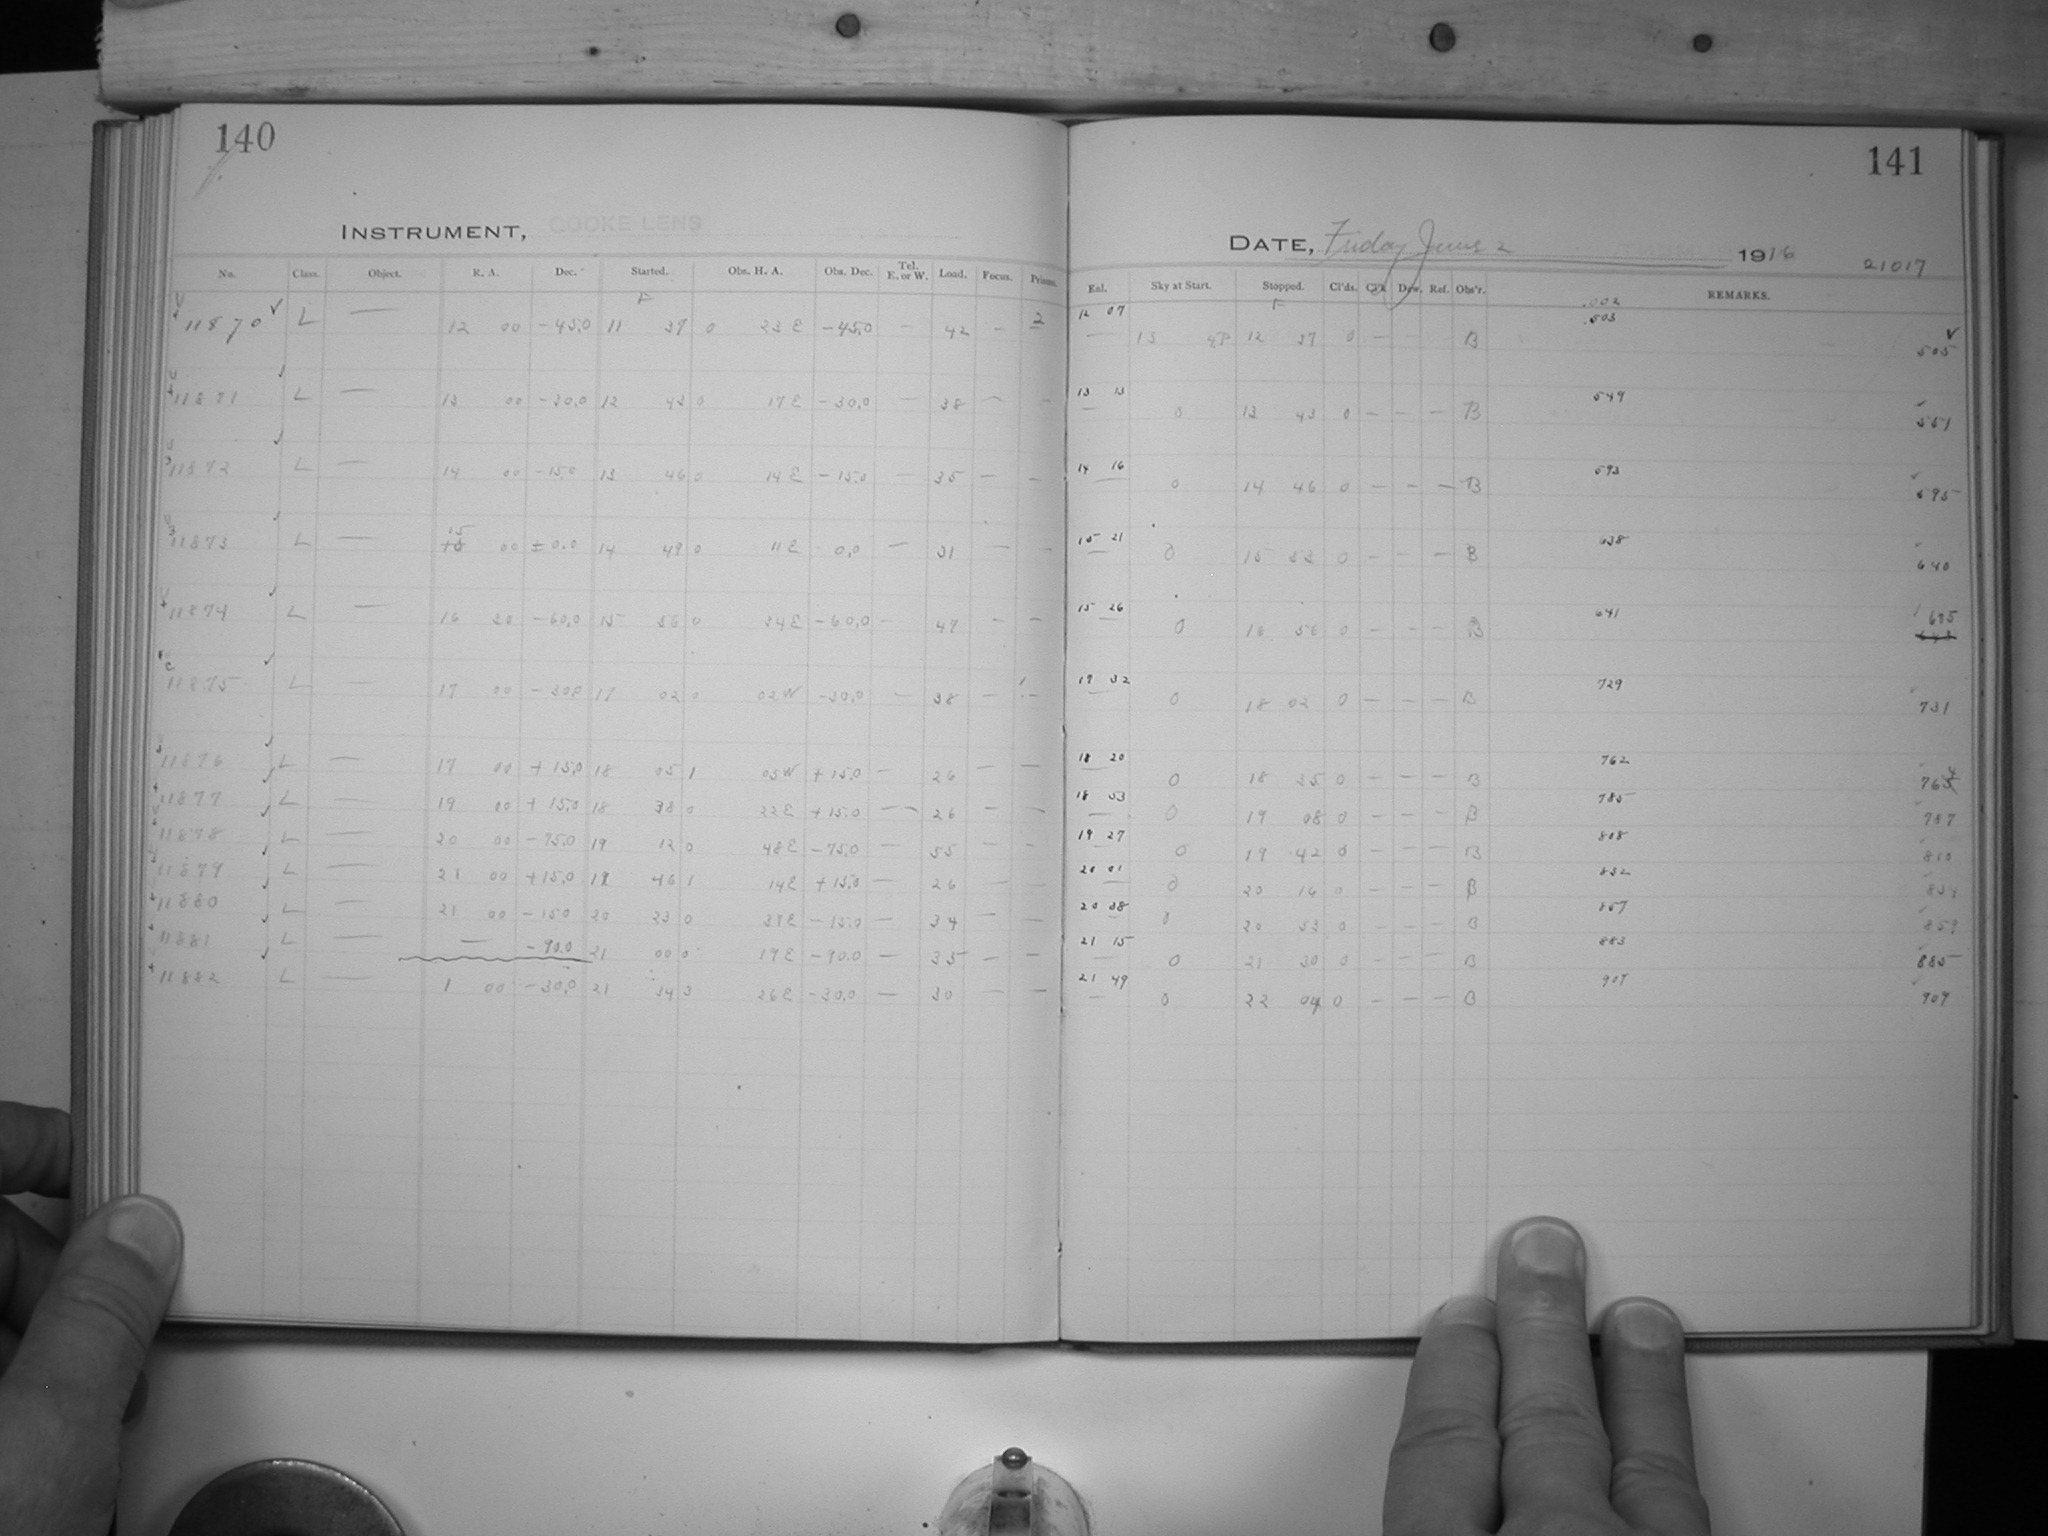 140
INSTRUMENT, COOKE LENS
No. Class. Object. R. A. Dec. Started. Obs. H. A. Obs. Dec. Tel. E. or W. Load. Focus. Prisms.
F
11870 L — 12 00 -45.0 11 37 0 23 E -45.0 — 42 — 2
11871 L — 13 00 -30.0 12 43 0 17 E -30.0 — 38 — —
11872 L — 14 00 -15.0 13 46 0 14 E -15.0 — 35 — —
15
11873 L — 00 ±0.0 14 49 0 11 E 0.0 — 31 — —
11874 L — 16 20 -60.0 15 56 0 24 E -60.0 — 47 — —
11875 L — 17 00 -30.0 17 02 0 02 W -30.0 — 38 — —
11876 L — 17 00 +15.0 18 05 1 05 W +15.0 — 26 — —
11877 L — 19 00 +15.0 18 38 0 22 E +15.0 — 26 — —
11878 L — 20 00 -75.0 19 12 0 48 E -75.0 — 55 — —
11879 L — 21 00 +15.0 19 46 1 14 E +15.0 — 26 — —
11880 L — 21 00 -15.0 20 23 0 38 E -15.0 — 34 — —
11881 L — — -90.0 21 00 0 19 E -90.0 — 35 — —
11882 L — 1 00 -30.0 21 34 3 26 E -30.0 — 30 — —
141
DATE, Friday June 2 1916
21017
Enl. Sky at Start. Stopped. Cl'ds. Cl'k Dew. Ref. Obs'r. REMARKS.
F
12 07 — 13 12 37 0 — B .002 .503 505
13 13 — 0 13 43 0 — — — B 549 551
14 16 — 0 14 46 0 — — — B 593 595
15 21 — 0 15 52 0 — — — B 638 640
15 26 — 0 16 56 0 — — — B 641 685
17 32 — 0 18 02 0 — — — B 729 731
18 20 — 0 18 35 0 — — — B 762 764
18 53 — 0 19 08 0 — — — B 785 787
19 27 — 0 19 42 0 — — — B 808 810
20 01 — 0 20 16 0 — — — B 832 834
20 38 — 0 20 53 0 — — — B 857 859
21 15 — 0 21 30 0 — — — B 883 885
21 49 — 0 22 04 0 — — — B 907 909